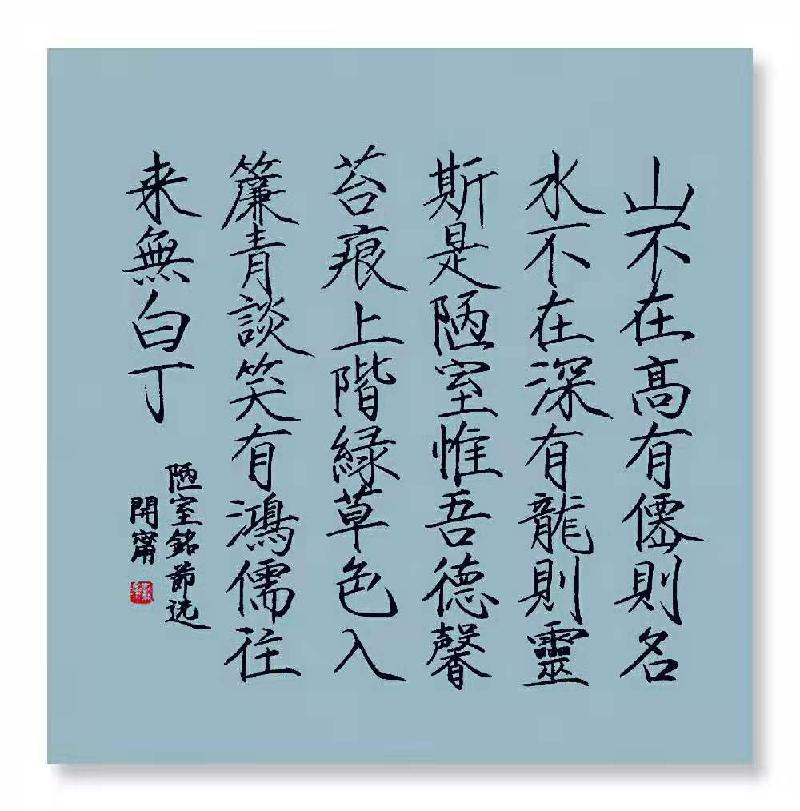 山不在高有僊則名
水不在深有龍則靈
斯是陋室惟吾德馨
苔痕上階緑草色入
簾青談笑有鴻儒往
来無白丁
陋室銘節选
開甯